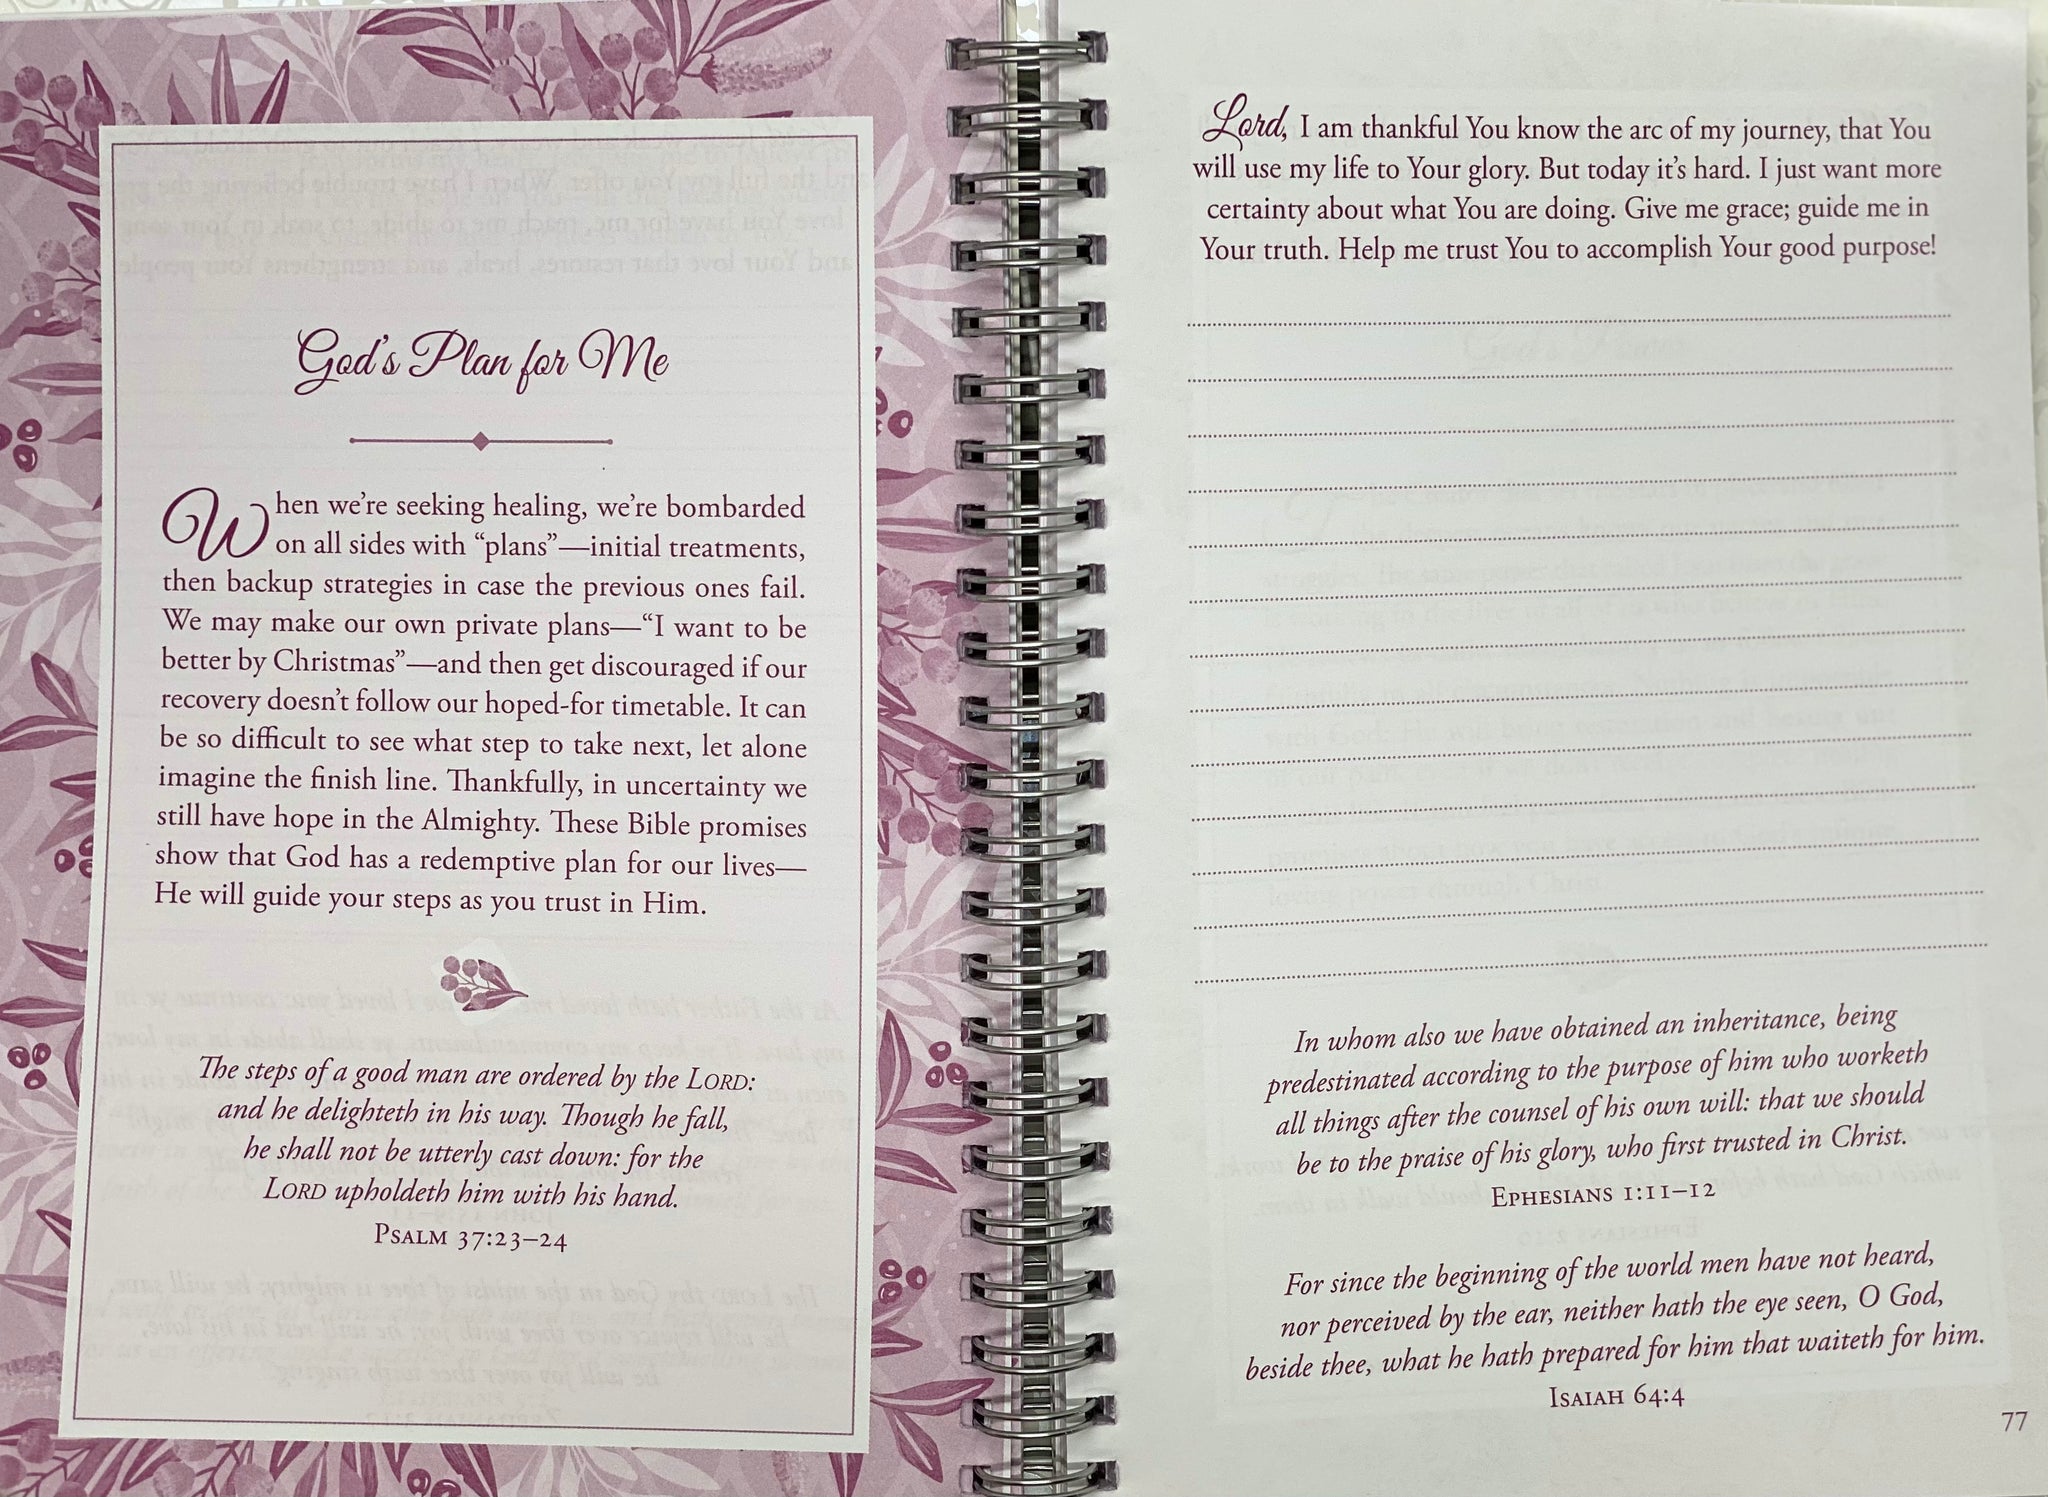 God's Plan for Me
When we're seeking healing, we're bombarded
on all sides with “plans”—initial treatments,
then backup strategies in case the previous ones fail.
We may make our own private plans—“I want to be
better by Christmas”—and then get discouraged if our
recovery doesn't follow our hoped-for timetable. It can
be so difficult to see what step to take next, let alone
imagine the finish line. Thankfully, in uncertainty we
still have hope in the Almighty. These Bible promises
show that God has a redemptive plan for our lives—
He will guide your steps as you trust in Him.
The steps of a good man are ordered by the LORD:
and he delighteth in his way. Though he fall,
he shall not be utterly cast down: for the
LORD upholdeth him with his hand.
PSALM 37:23–24
Lord, I am thankful You know the arc of my journey, that You
will use my life to Your glory. But today it's hard. I just want more
certainty about what You are doing. Give me grace; guide me in
Your truth. Help me trust You to accomplish Your good purpose!
In whom also we have obtained an inheritance, being
predestinated according to the purpose of him who worketh
all things after the counsel of his own will: that we should
be to the praise of his glory, who first trusted in Christ.
EPHESIANS 1:11–12
For since the beginning of the world men have not heard,
nor perceived by the ear, neither hath the eye seen, O God,
beside thee, what he hath prepared for him that waiteth for him.
ISAIAH 64:4
77